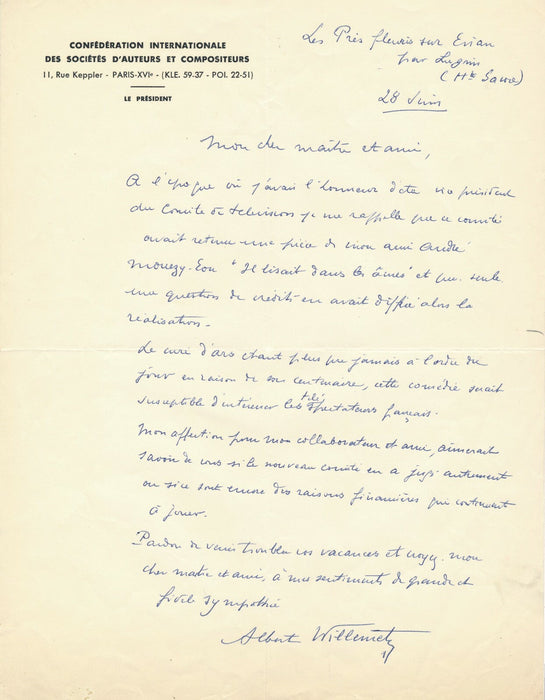 CONFÉDÉRATION INTERNATIONALE
DES SOCIÉTÉS D'AUTEURS ET COMPOSITEURS
11, Rue Keppler - PARIS-XVIe - (KLE. 59-37 - POL 22-51)
LE PRÉSIDENT
Les Prés fleuris sur Evian
par Lugrin
(Hte Savoie)
28 Juin
Mon cher maître et ami,
A l'époque où j'avais l'honneur d'être vice président
du Comité de télévision je me rappelle que ce comité
avait retenu une pièce de mon ami André
Mouezy-Eon "Il lisait dans les âmes" et que seule
une question de crédits en avait différé alors la
réalisation.
Le curé d'ars étant plus que jamais à l'ordre du
jour en raison de son centenaire, cette comédie serait
susceptible d'intéresser les téléspectateurs français.
Mon affection pour mon collaborateur et ami, aimerait
savoir de vous si le nouveau comité en a jugé autrement
ou si ce sont encore des raisons financières qui continuent
à jouer.
Pardon de venir troubler vos vacances et croyez, mon
cher maître et ami, à mes sentiments de grande et
fidèle sympathie
Albert Willemetz